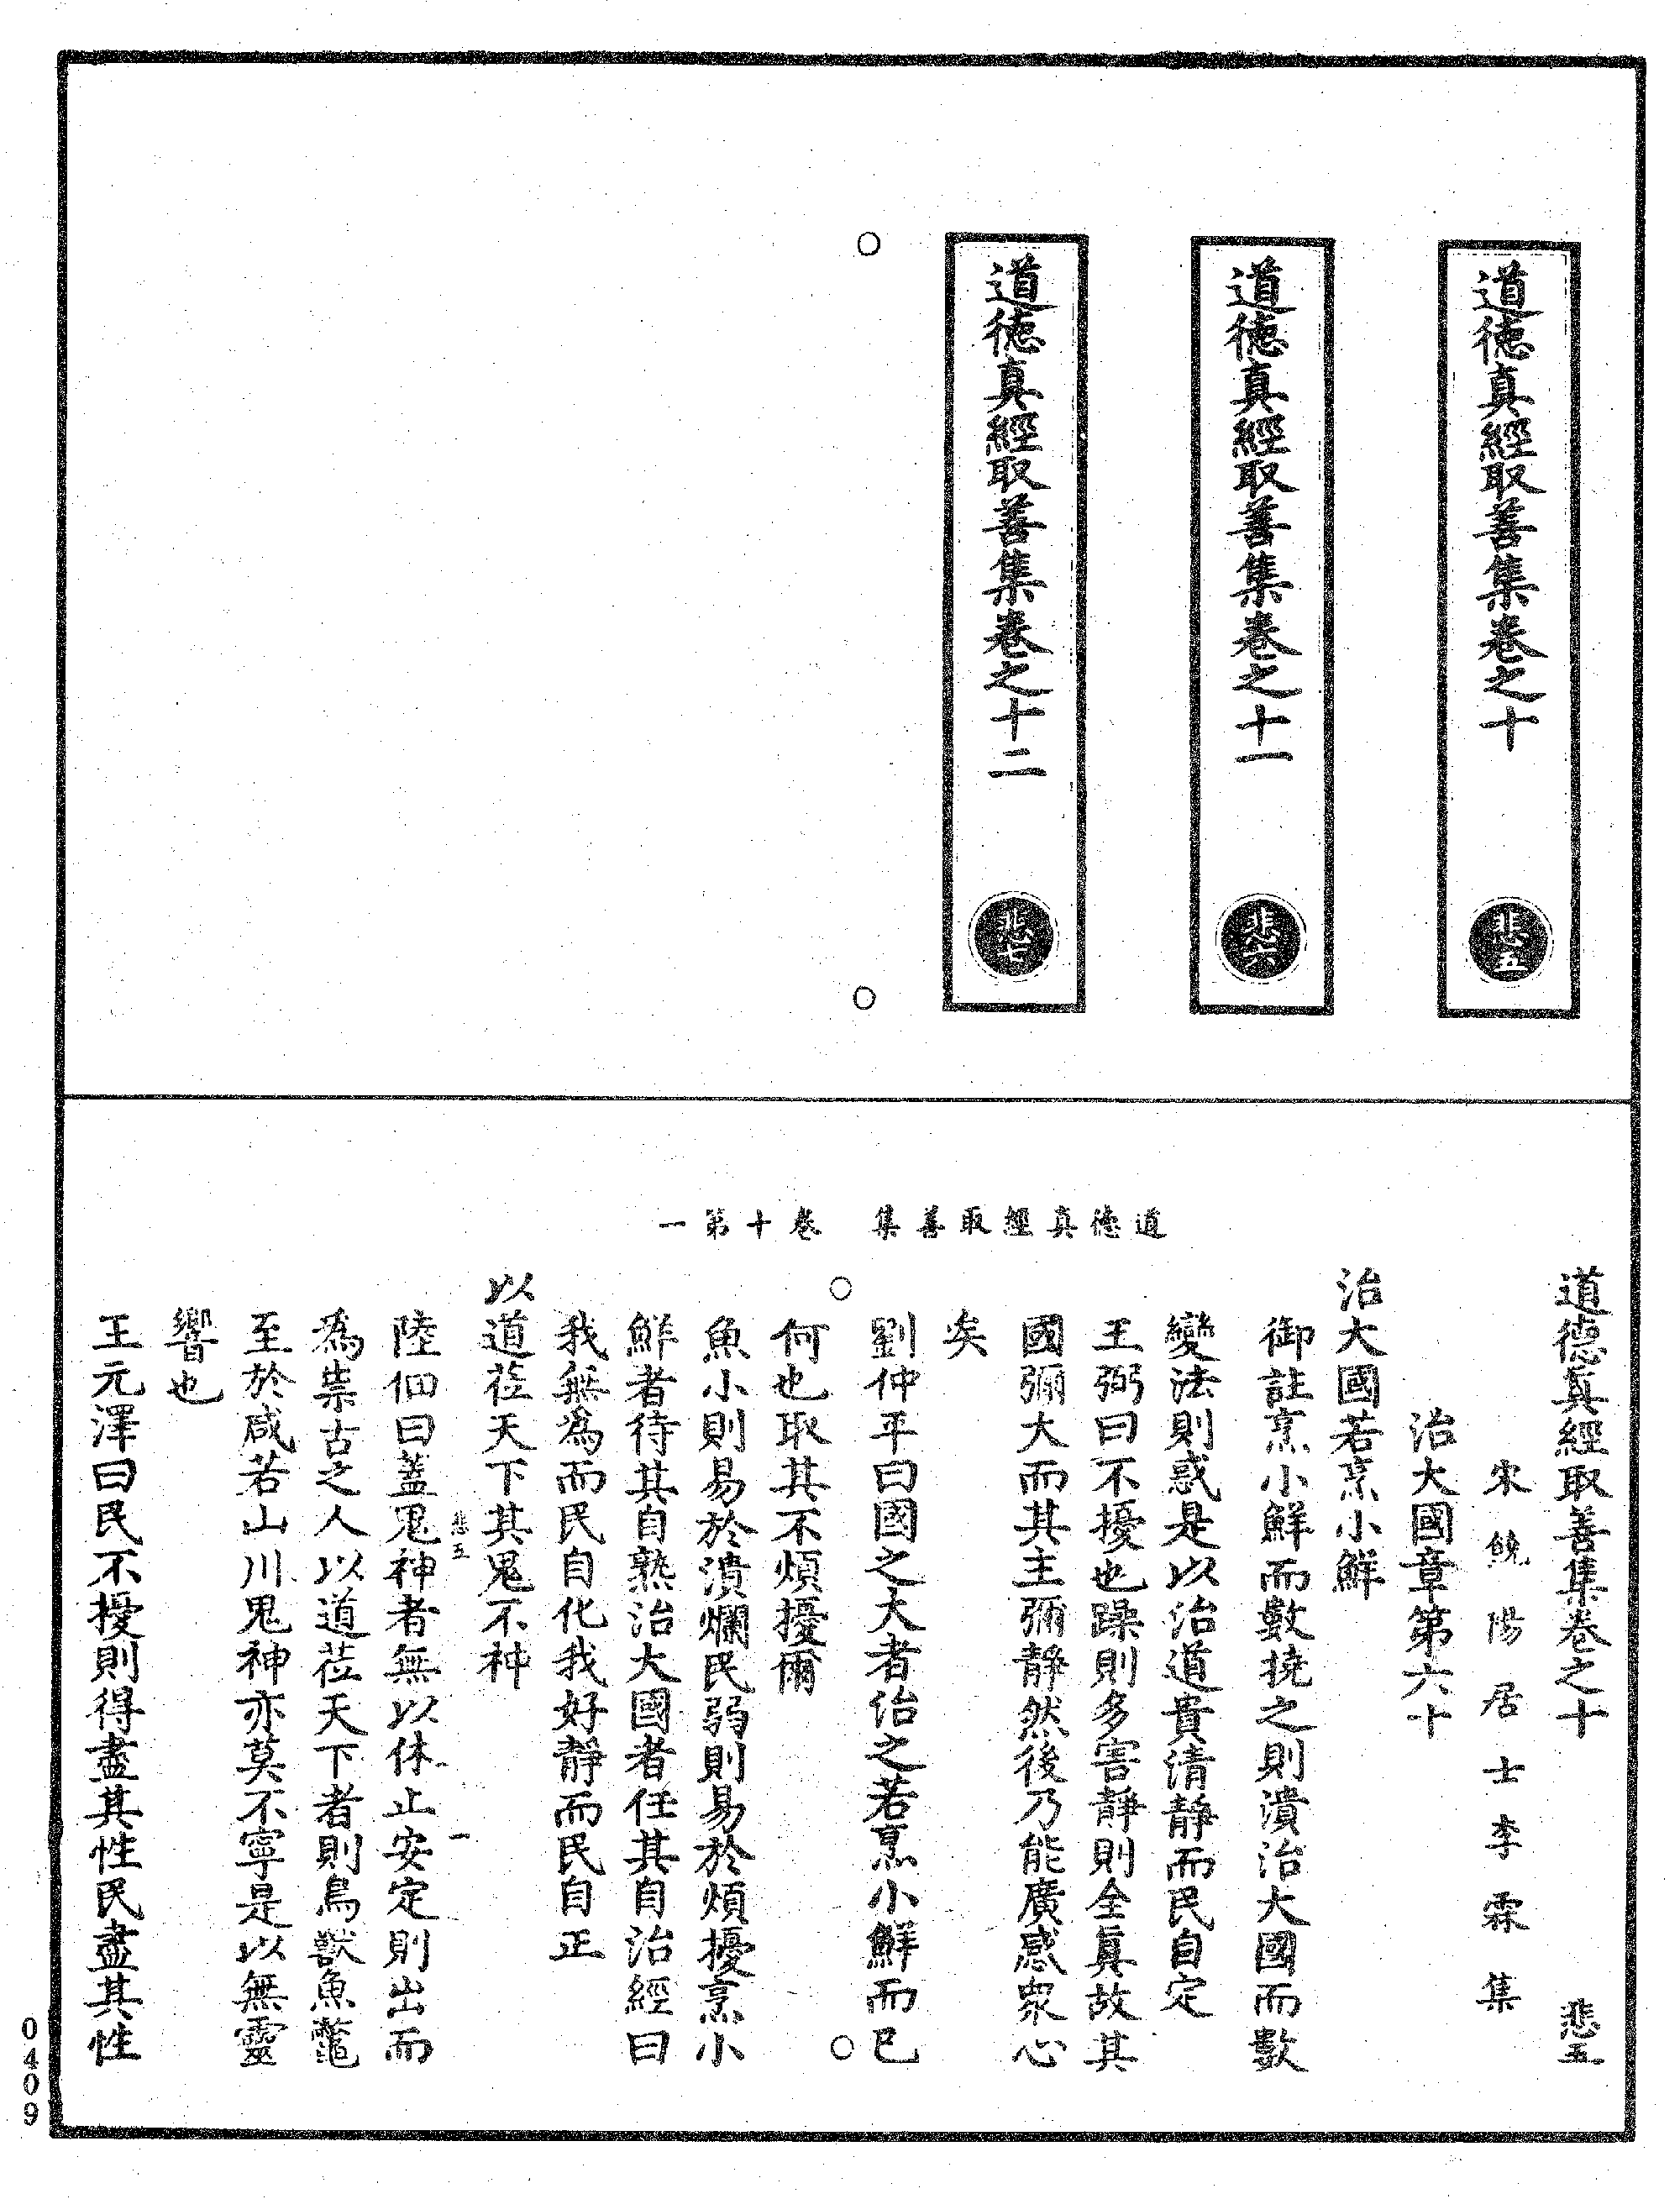 道德真經取善集卷之十
悲五
道德真經取善集卷之十一
悲六
道德真經取善集卷之十二
悲七
道德真經取善集　卷十第一
道德真經取善集卷之十　悲五
宋饒陽居士李霖集
治大國章第六十
治大國若烹小鮮
御註烹小鮮而數撓之則潰治大國而數
變法則惑是以治道貴清靜而民自定
王弼曰不擾也躁則多害靜則全真故其
國彌大而其主彌靜然後乃能廣感眾心
矣
劉仲平曰國之大者治之若烹小鮮而已
何也取其不煩擾爾
魚小則易於潰爛民弱則易於煩擾烹小
鮮者待其自熟治大國者任其自治經曰
我無為而民自化我好靜而民自正
以道莅天下其鬼不神
悲五　一
陸佃曰蓋鬼神者無以休止安定則出而
為祟古之人以道莅天下者則鳥獸魚鼈
至於咸若山川鬼神亦莫不寧是以無靈
響也
王元澤曰民不擾則得盡其性民盡其性
0409